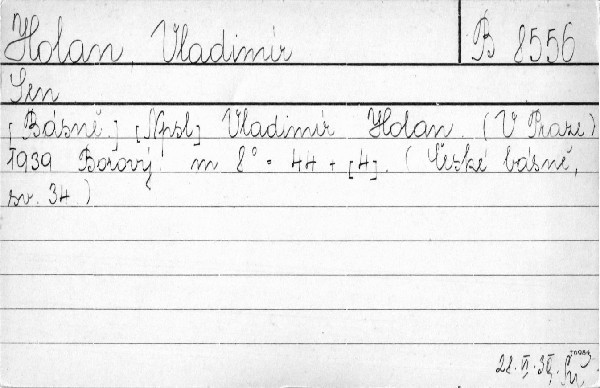 Holan Vladimír B 8556
Sen
[Básně.] [Npsl] Vladimír Holan. (V Praze)
1939 Borový. m 8° - 44 + [4]. (České básně,
sv. 34.)